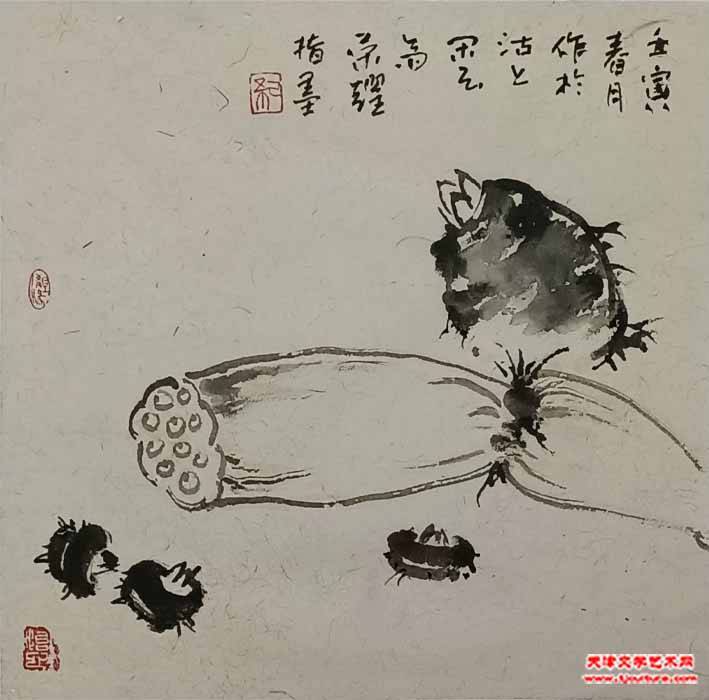 壬寅
春月
作於
沽上
闲云
斋
荣耀
指墨
天津文学艺术网
www.tjculture.com